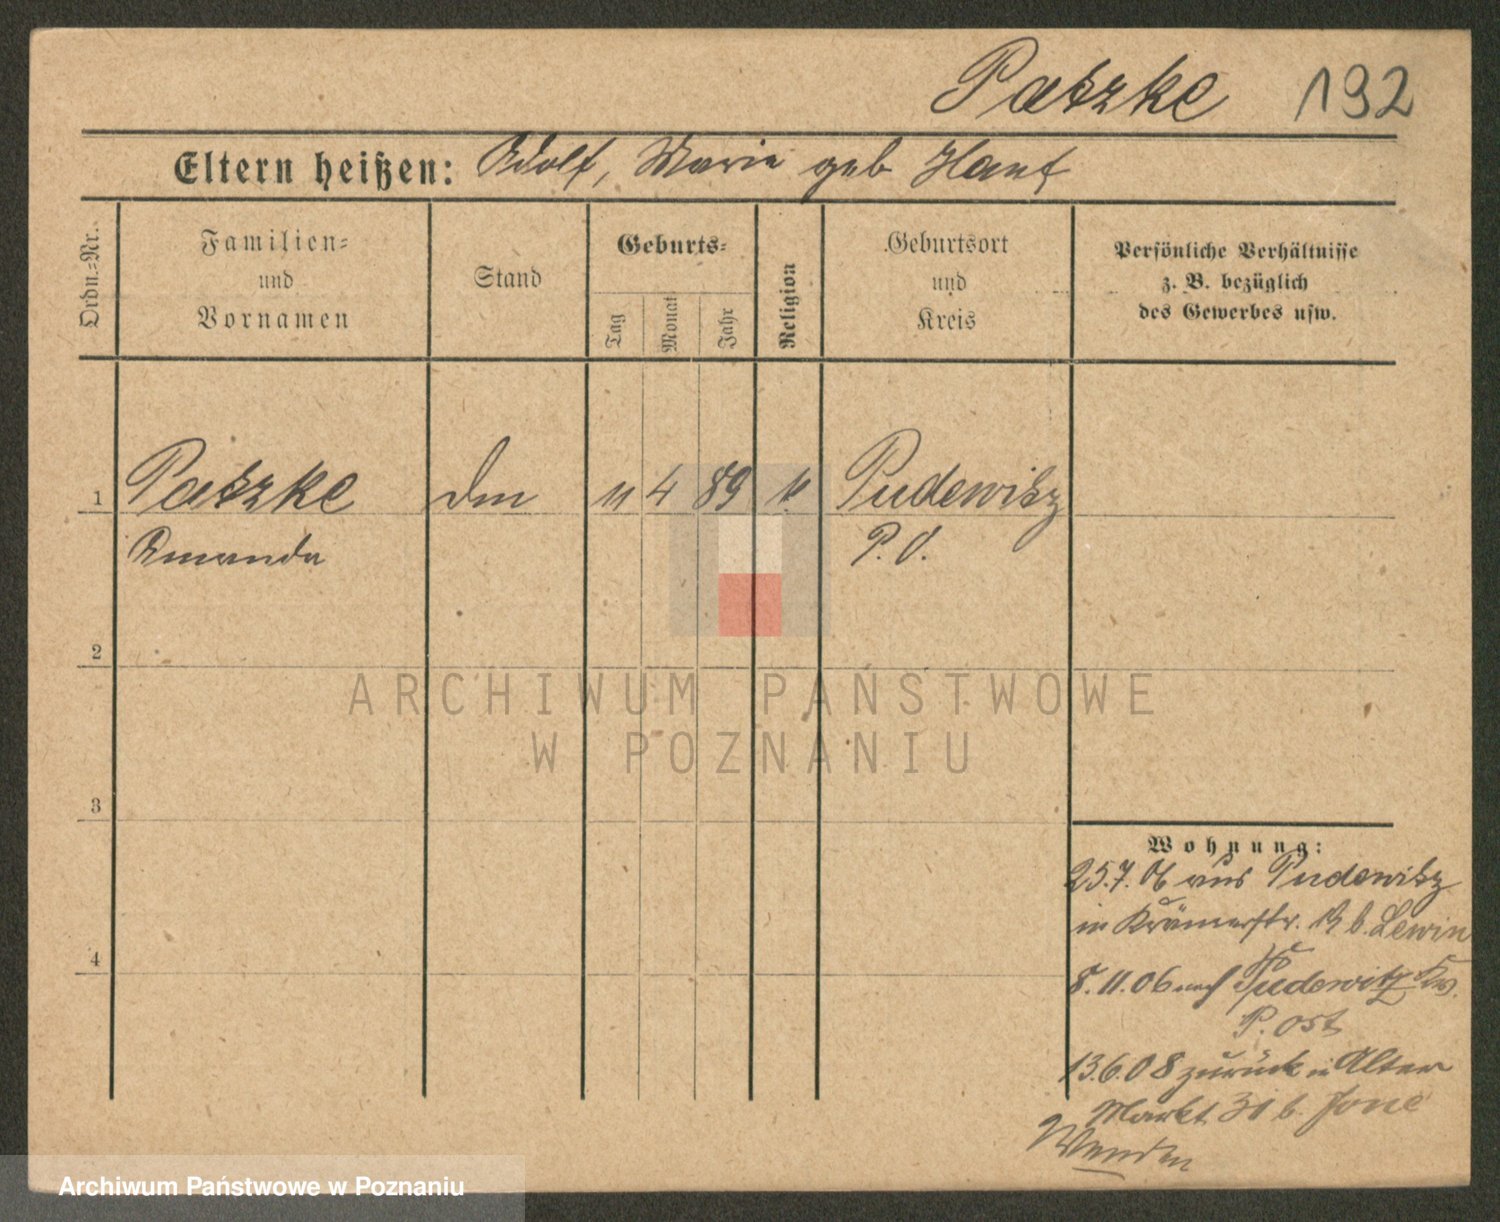 Patzke 192
Eltern heißen: Adolf, Marie geb Hanf
Ordn.-Nr.
Familien-
und
Vornamen
Stand
Geburts-
Tag
Monat
Jahr
Religion
Geburtsort
und
Kreis
Persönliche Verhältnisse
z. B. bezüglich
des Gewerbes usw.
1 Patzke 11 4 89 Pudewitz
Amanda P. O.
2
3
4
Wohnung:
25.7.06 aus Pudewitz
in Krämerstr. b. Lewin
8.11.06 nach Pudewitz Kr.
P. Ost
13.6.08 zurück in Alter
Markt 31 b.
Wenden
ARCHIWUM PAŃSTWOWE
W POZNANIU
Archiwum Państwowe w Poznaniu